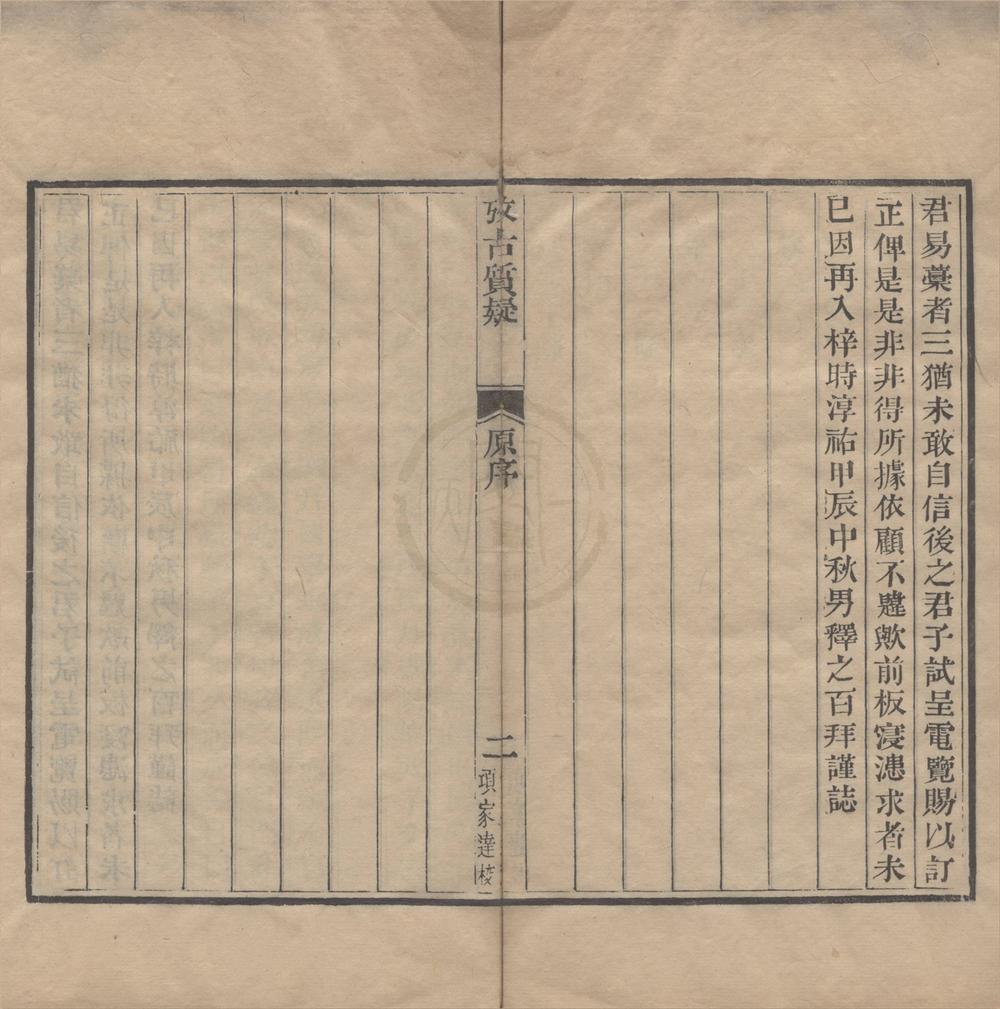 君易藁者三猶未敢自信後之君子試呈電覽賜以訂
正俾是是非非得所據依顧不韙歟前板寖漶求者未
已因再入梓時淳祐甲辰中秋男釋之百拜謹誌
攷古質疑
原序
二
項家達校